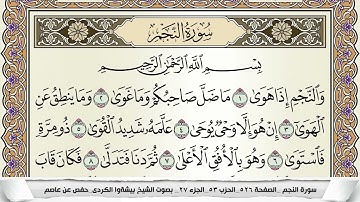 سُورَةُ النَّجْمِ
بِسْمِ اللَّهِ الرَّحْمَٰنِ الرَّحِيمِ
وَالنَّجْمِ إِذَا هَوَىٰ ١ مَا ضَلَّ صَاحِبُكُمْ وَمَا غَوَىٰ ٢ وَمَا يَنطِقُ عَنِ
الْهَوَىٰ ٣ إِنْ هُوَ إِلَّا وَحْيٌ يُوحَىٰ ٤ عَلَّمَهُ شَدِيدُ الْقُوَىٰ ٥ ذُو مِرَّةٍ
فَاسْتَوَىٰ ٦ وَهُوَ بِالْأُفُقِ الْأَعْلَىٰ ٧ ثُمَّ دَنَا فَتَدَلَّىٰ ٨ فَكَانَ قَابَ
سورة النجم _الصفحة ٥٢٦_الحزب ٥٣_الجزء ٢٧_ بصوت الشيخ بيشةوا الكردي_حفص عن عاصم